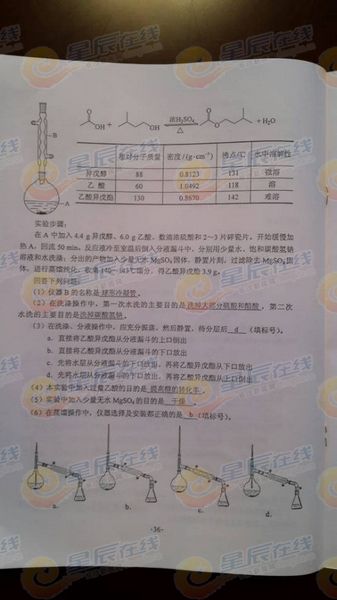 星辰在线
B
A
OH + OH 浓H₂SO₄ △ + H₂O
相对分子质量 密度/(g·cm⁻³) 沸点/℃ 水中溶解性
异戊醇 88 0.8123 131 微溶
乙 酸 60 1.0492 118 溶
乙酸异戊酯 130 0.8670 142 难溶
实验步骤：
在 A 中加入 4.4 g 异戊醇、6.0 g 乙酸、数滴浓硫酸和 2～3 片碎瓷片，开始缓慢加
热 A，回流 50 min，反应液冷至室温后倒入分液漏斗中，分别用少量水、饱和碳酸氢钠
溶液和水洗涤；分出的产物加入少量无水 MgSO₄固体，静置片刻，过滤除去 MgSO₄固
体，进行蒸馏纯化，收集 140～143℃馏分，得乙酸异戊酯 3.9 g。
回答下列问题：
（1）仪器 B 的名称是 球形冷凝管。
（2）在洗涤操作中，第一次水洗的主要目的是 洗掉大部分硫酸和醋酸 ，第二次
水洗的主要目的是 洗掉碳酸氢钠。
（3）在洗涤、分液操作中，应充分振荡，然后静置，待分层后 d （填标号）。
a. 直接将乙酸异戊酯从分液漏斗的上口倒出
b. 直接将乙酸异戊酯从分液漏斗的下口放出
c. 先将水层从分液漏斗的下口放出，再将乙酸异戊酯从下口放出
d. 先将水层从分液漏斗的下口放出，再将乙酸异戊酯从上口倒出
（4）本实验中加入过量乙酸的目的是 提高醇的转化率 。
（5）实验中加入少量无水 MgSO₄ 的目的是 干燥 。
（6）在蒸馏操作中，仪器选择及安装都正确的是 b （填标号）。
a. b. c. d.
-36-